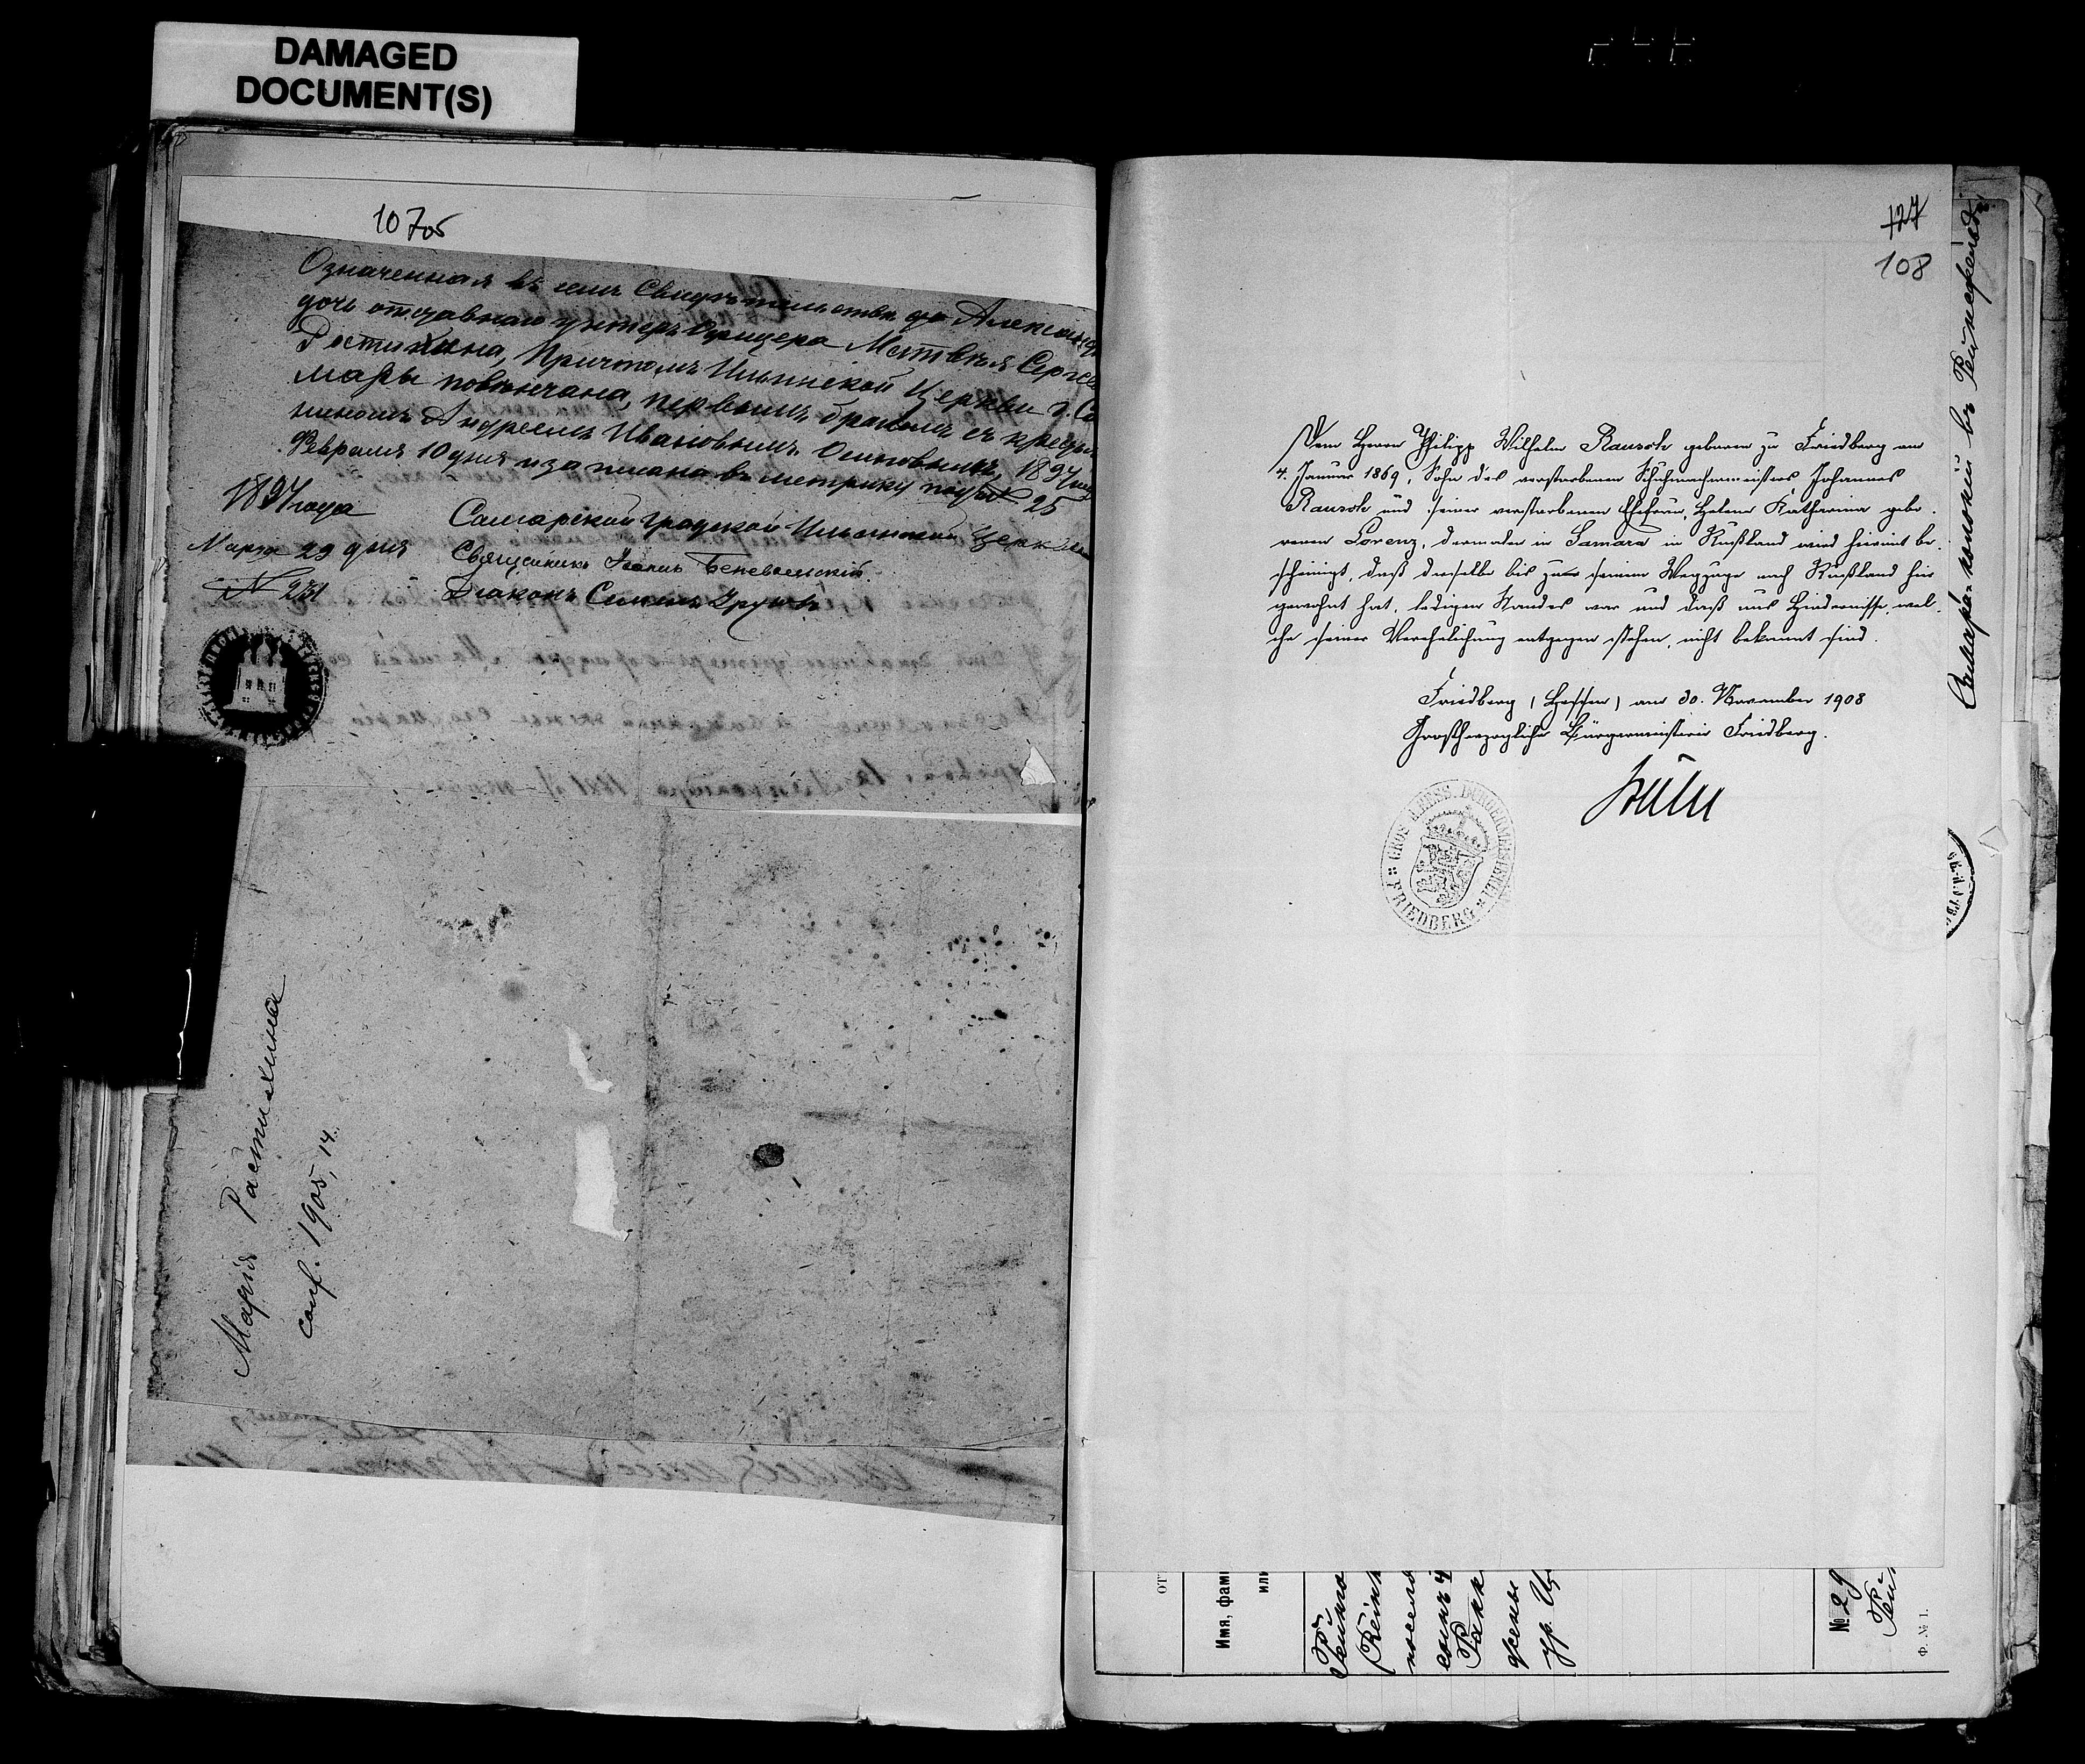 DAMAGED
DOCUMENT(S)
107об
Означенная въ семъ Свидѣтельствѣ Александра
дочь отставнаго унтеръ Офицера Матвѣя Сергѣева
Растихина, Причтомъ Ильинской Церкви г. Са
мары повѣнчана, первымъ бракомъ съ крестья
ниномъ Андреемъ Ивановымъ Осиповымъ, 1897 года
Февраля 10 дня и записана въ метрику подъ № 25
1897 года
Марта 29 дня
№ 231
Самарской Градской Ильинской Церкви
Священникъ Іоаннъ
Діаконъ Симеонъ
Марія Растихина
conf. 1905, 14.
127
108
Dem Herrn Philipp Wilhelm Rausch geboren zu Friedberg am
4. Januar 1869, Sohn des verstorbenen Schuhmachermeisters Johannes
Rausch und seiner verstorbenen Ehefrau, Helena Katharina gebo-
renen Lorenz, dermalen in Samara in Rußland wird hiermit be-
scheinigt, daß derselbe bis zu seinem Wegzuge nach Rußland hier
gewohnt hat, ledigen Standes war und daß uns Hindernisse, wel-
che seiner Verehelichung entgegen stehen, nicht bekannt sind.
Friedberg (Hessen) am 30. November 1908
Großherzogliche Bürgermeisterei Friedberg.
GROSH. HESS. BÜRGERMEISTEREI
FRIEDBERG
Имя, фами
или
от
Рейнго
(Rein
поселя
сынъ
жены
ур.
№ 29
Рей
Ф. № 1.